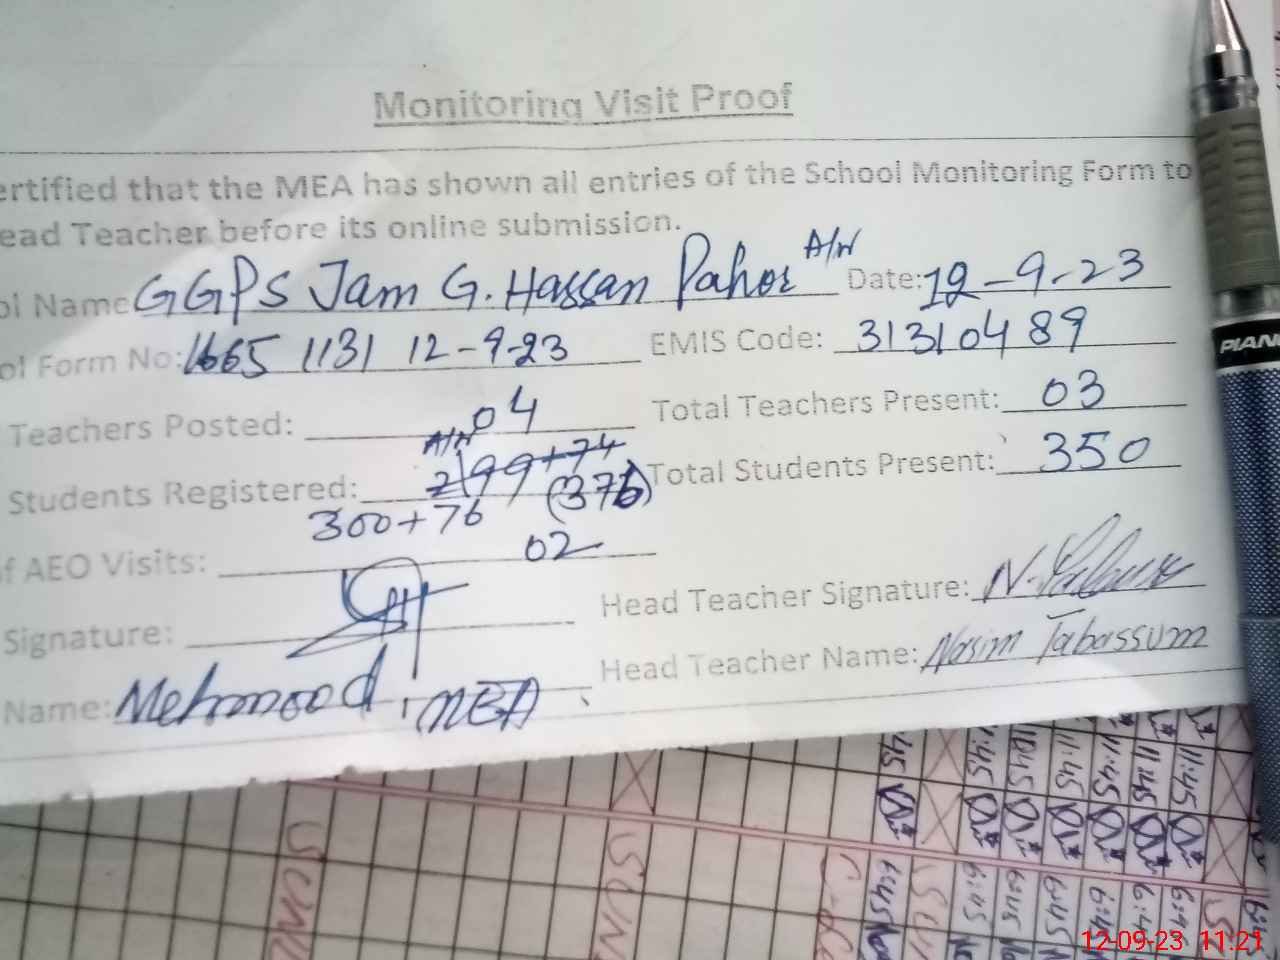 Monitoring Visit Proof
ertified that the MEA has shown all entries of the School Monitoring Form to
ead Teacher before its online submission.
ol Name GGPS Jam G. Hassan Pahor A/N Date: 12-9-23
ol Form No: 1665 1131 12-9-23 EMIS Code: 31310489
Teachers Posted: 04 Total Teachers Present: 03
A/N
Students Registered: 299+74 (376) Total Students Present: 350
300+76
f AEO Visits: 02
Signature: Head Teacher Signature:
Name: Mehmood, MEA Head Teacher Name: Nasim Tabassum
PIAN
:45 1:45 10:45 11:45 11:45 11:45 11:45
6:45 6:45 6:45 6:45
12-09-23 11:21